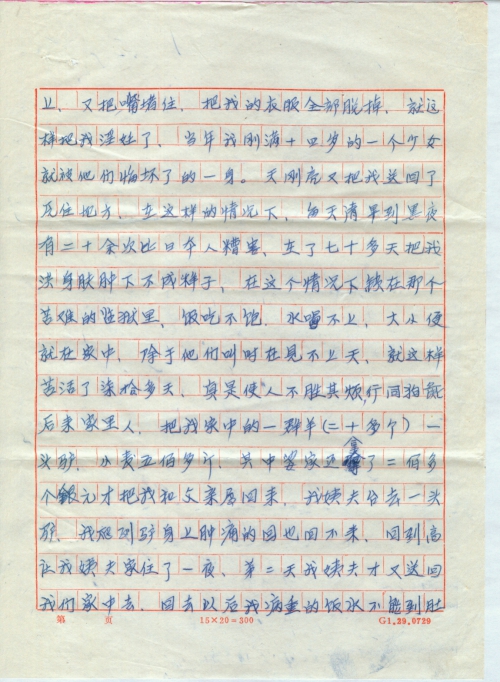 上、又把嘴堵住、把我的衣服全部脱掉、就这
样把我淫了、当年我刚满十四岁的一个少女
就被他们侮坏了的一身。天刚亮又把我送回了
原住地方、在这样的情况下、每天清早到黑夜
有二十余次比日本人糟害、在了七十多天把我
浑身肤肿下不成样子、在这个情况下在那个
苦难的监狱里、饭吃不饱、水喝不上、大小便
就在家中、除于他们叫时在见不上天、就这样
苦活了柒拾多天、真是使人不胜其烦,行同狗彘
后来家里人、把我家中的一群羊(二十多个)一
头驴、小麦五佰多斤、其中家还拿了二佰多
个银元才把我和父亲回来、我姨夫去一头
驴、我爬到驴身上肿痛的回也回不来、回到高
庄我姨夫家住了一夜、第二天我姨夫才又送回
我们家中去、回去以后我病重的饭水不能到肚
第 页 15×20=300 G1.39.0729